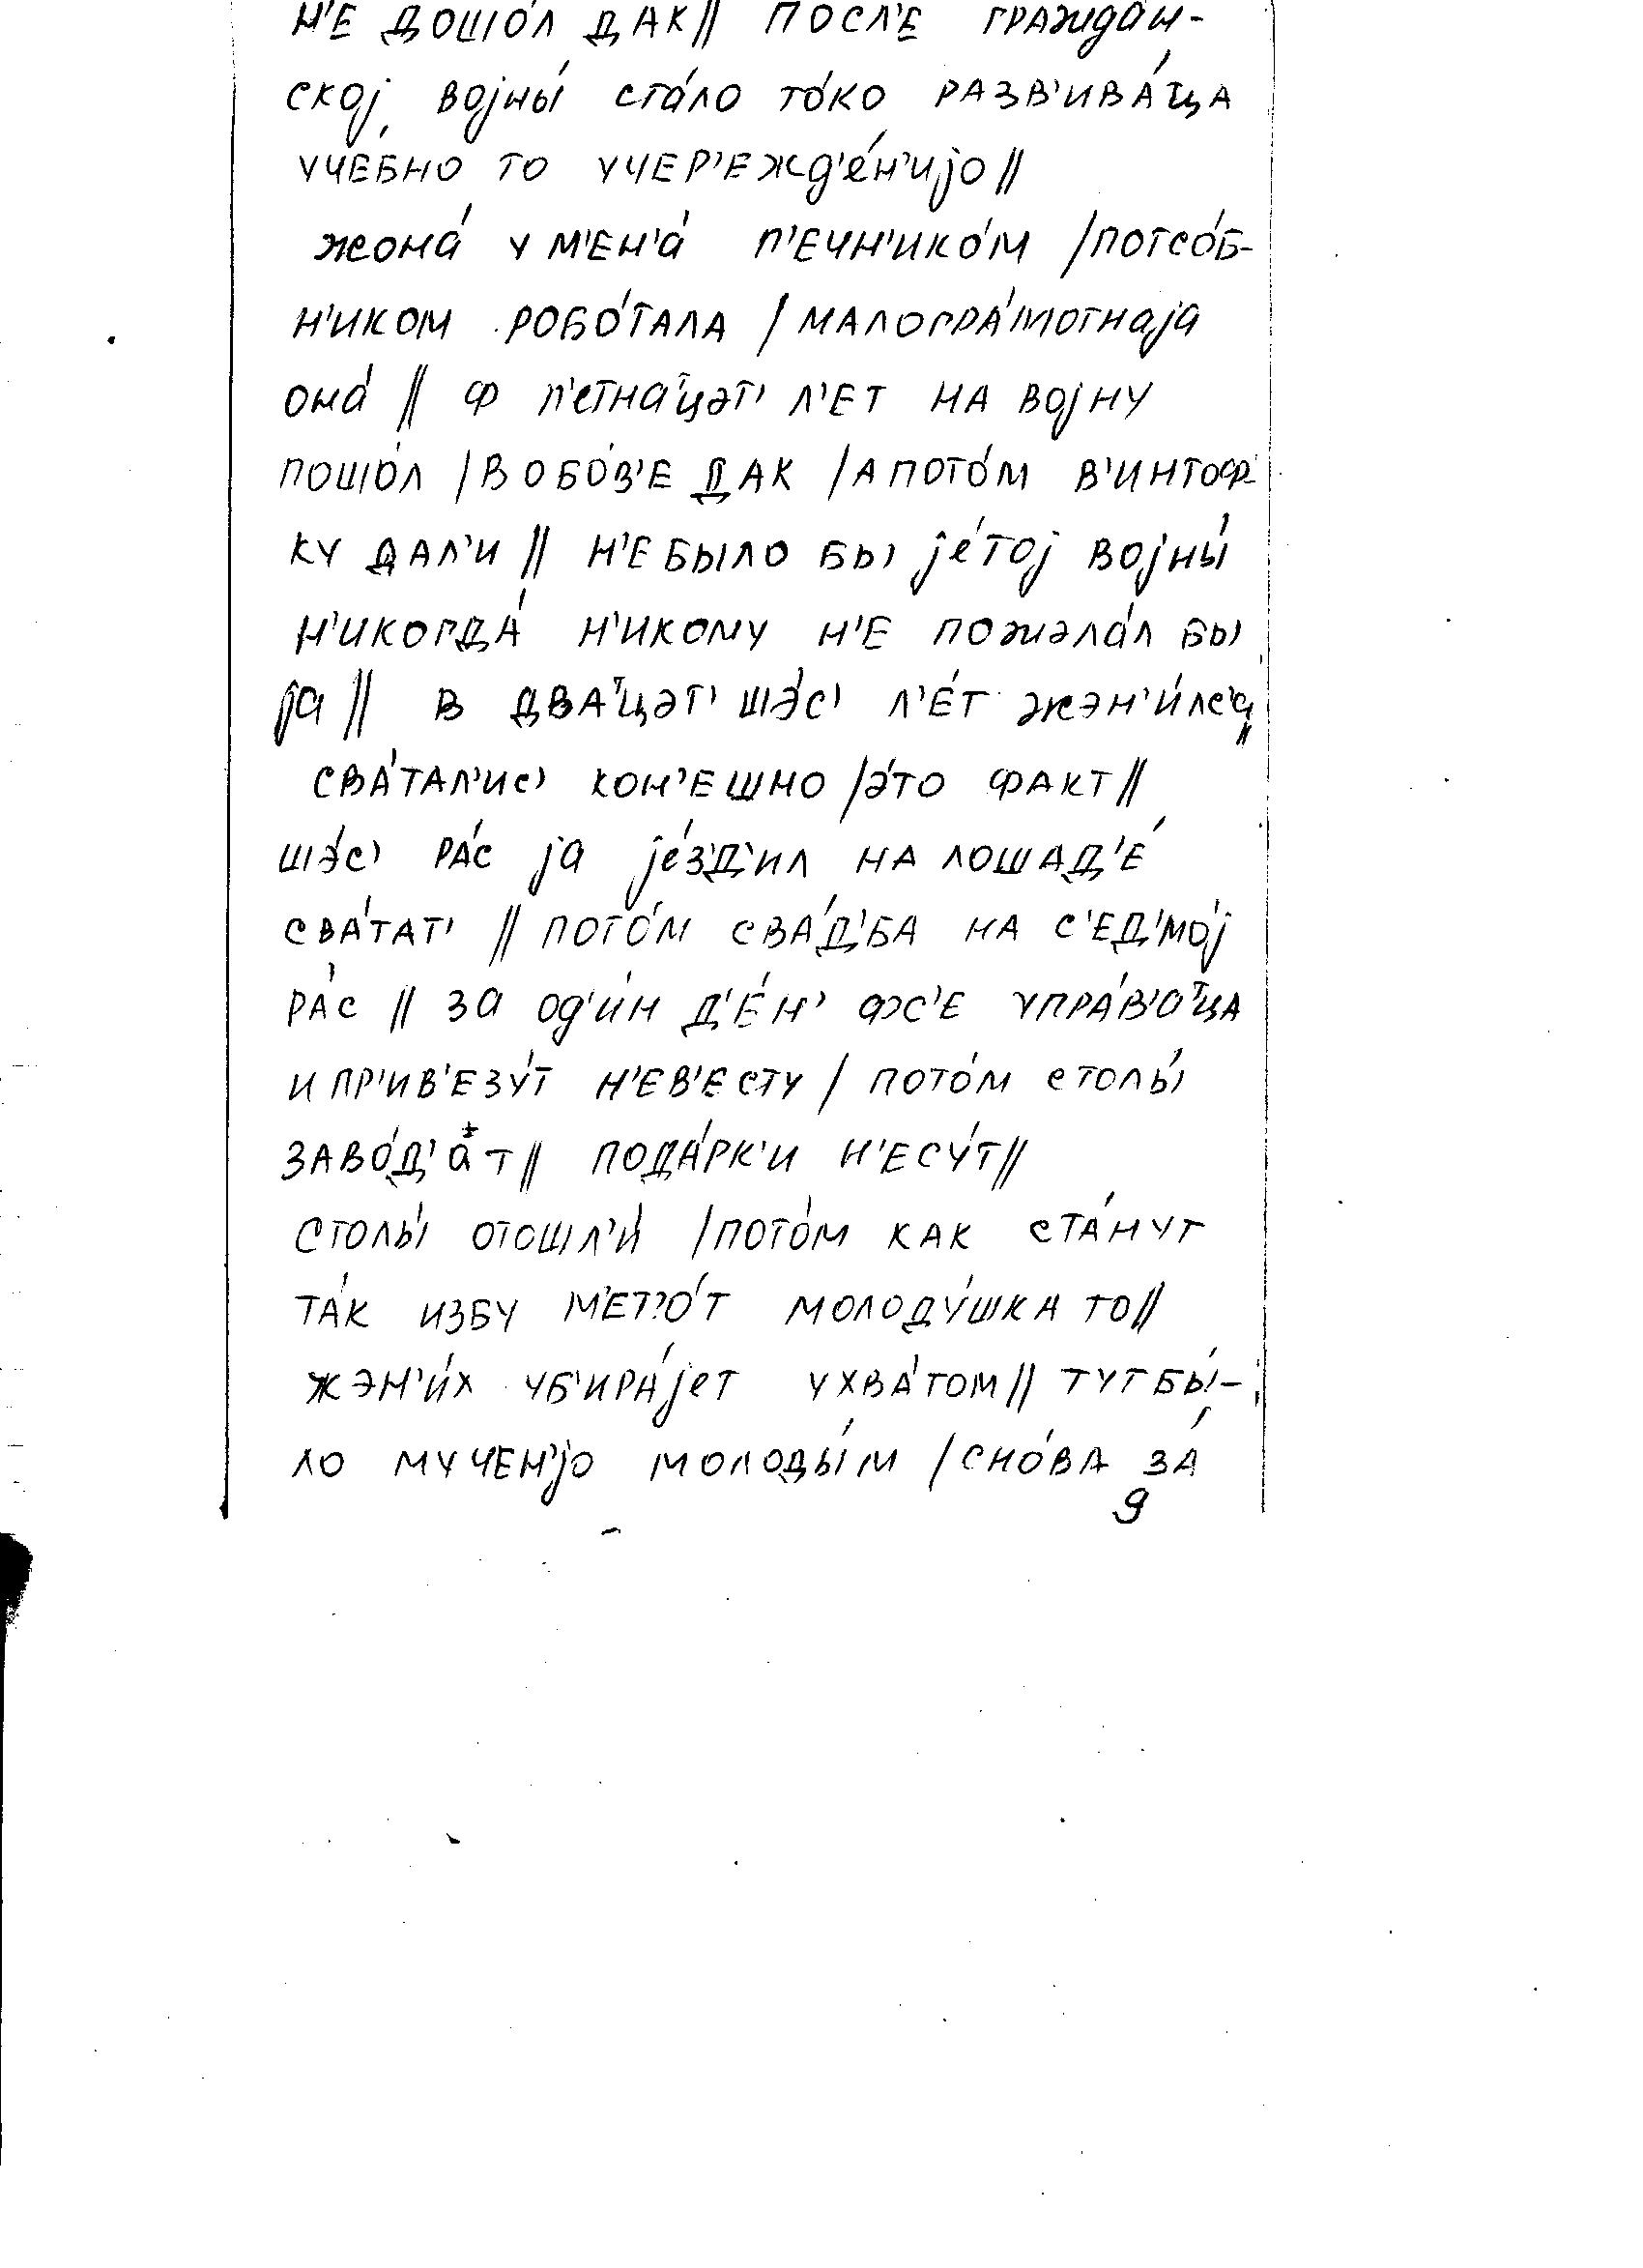 н'е дошо́л дак // посл'е гражда́н-
ској војны́ ста́ло то́ко разв'ива́ца
уче́бно то учер'ежд'е́н'ијо //
жона́ у м'ен'а́ п'ечн'ико́м / потсо́б-
н'иком робо́тала / малогра́мотнаја
она́ // ф п'етна́цэт' л'ет на војну
пошо́л / в обо́з'е дак / а пото́м в'интоф-
ку дал'и // н'е было бы је́тој војны́
н'икогда́ н'икому н'е пожэла́л бы
ја // в два́цэт' шэ́с' л'е́т жэн'и́лс'а //
сва́тал'ис' кон'ешно / э́то факт //
шэ́с' ра́с ја је́з'д'ил на лошад'е́
сва́тат' // пото́м сва́д'ба на с'ед'мо́ј
ра́с // за од'и́н д'е́н' фс'е упра́в'аца
и пр'ив'езу́т н'ев'есту / пото́м столы́
заво́д'ат // пода́рк'и н'есу́т //
столы́ отошл'и́ / пото́м как ста́нут
та́к избу м'ет'о́т молоду́шка то //
жэн'и́х уб'ира́јет ухва́том // тут бы́-
ло мучен'јо молоды́м / сно́ва за́
9